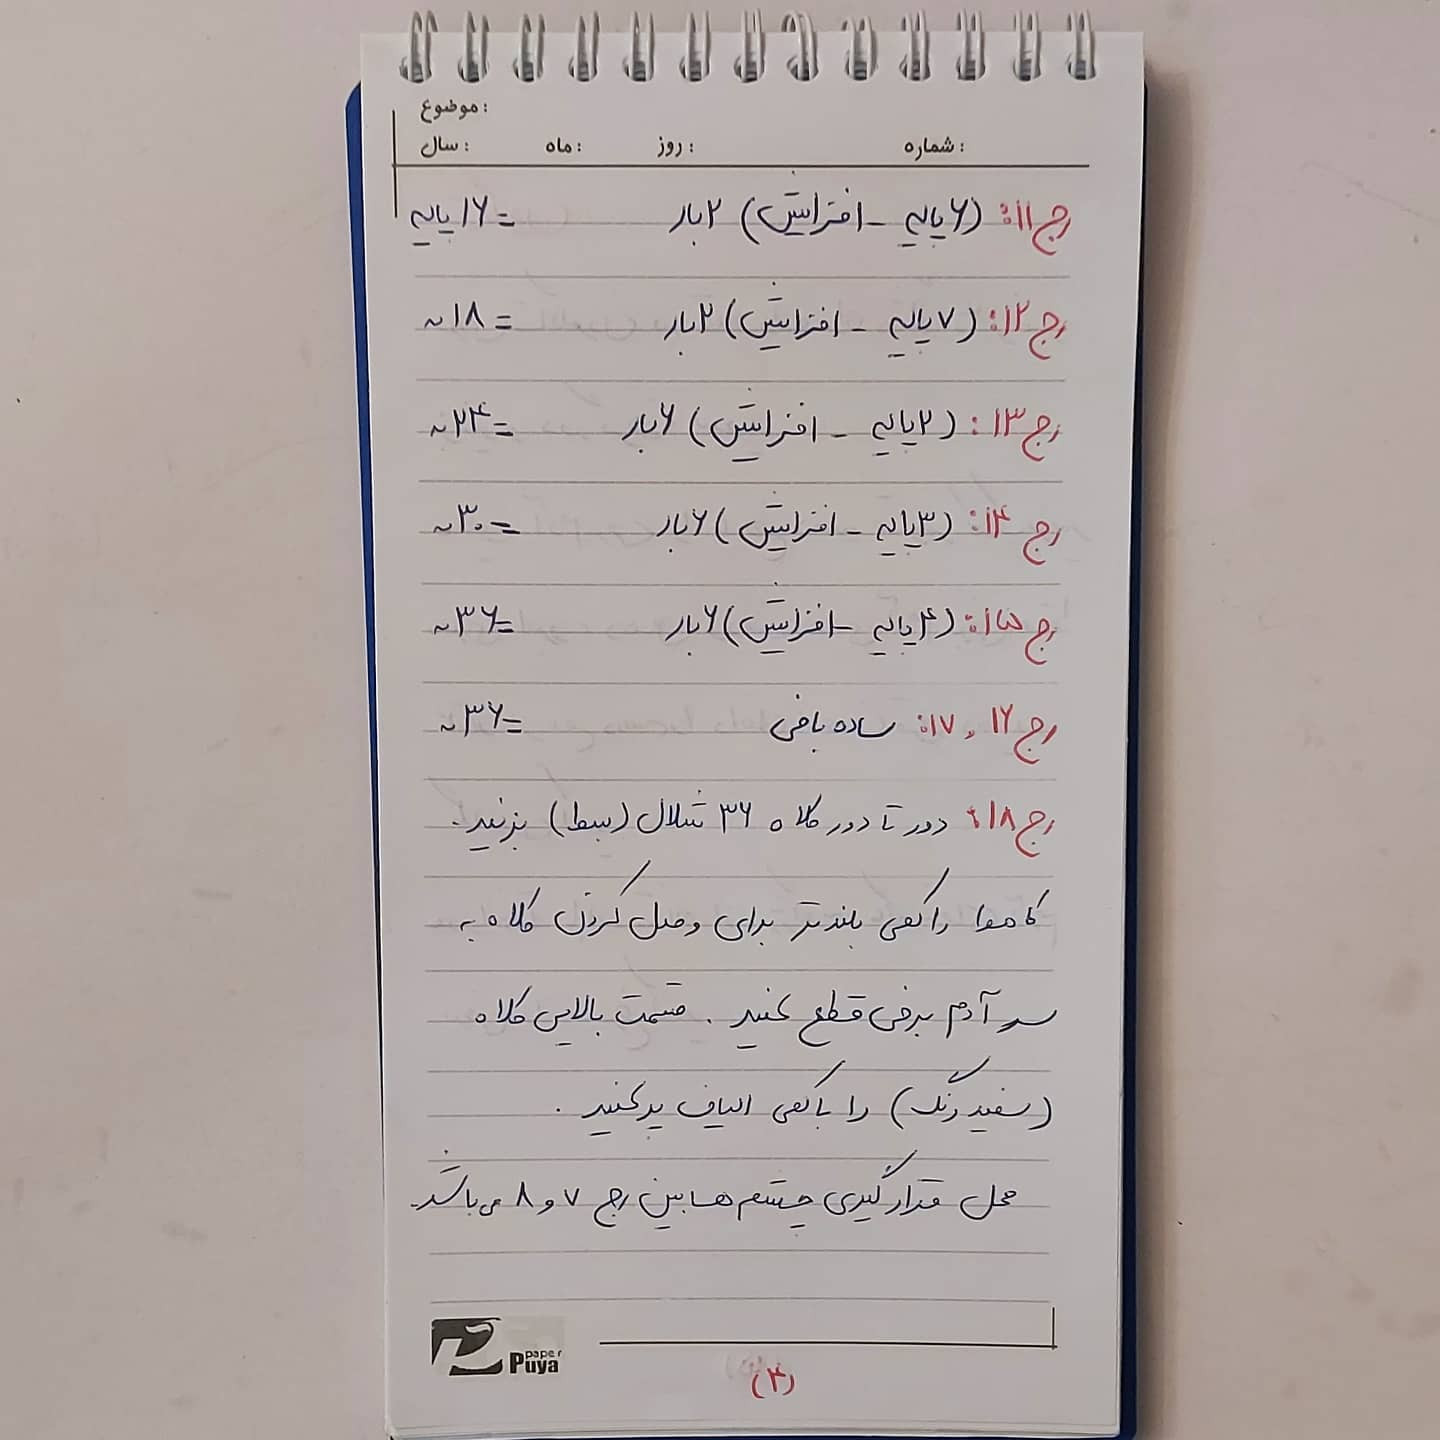 موضوع :
شماره : روز : ماه : سال :
رج ۱۱: (۶ پایه - افزایش) ۲ بار = ۱۶ پایه
رج ۱۲: (۷ پایه - افزایش) ۲ بار = ۱۸ ~
رج ۱۳: (۲ پایه - افزایش) ۶ بار = ۲۴ ~
رج ۱۴: (۳ پایه - افزایش) ۶ بار = ۳۰ ~
رج ۱۵: (۴ پایه - افزایش) ۶ بار = ۳۶ ~
رج ۱۶ و ۱۷: ساده بافی = ۳۶ ~
رج ۱۸: دور تا دور کلاه ۳۶ شلال (بسط) بزنید.
کاموا را کمی بلندتر برای وصل کردن کلاه به
سر آدم برفی قطع کنید . قسمت بالایی کلاه
(سفید رنگ) را با کمی الیاف پر کنید .
محل قرارگیری چشم ها بین رج ۷ و ۸ می باشد.
paper
Puya
(۴)